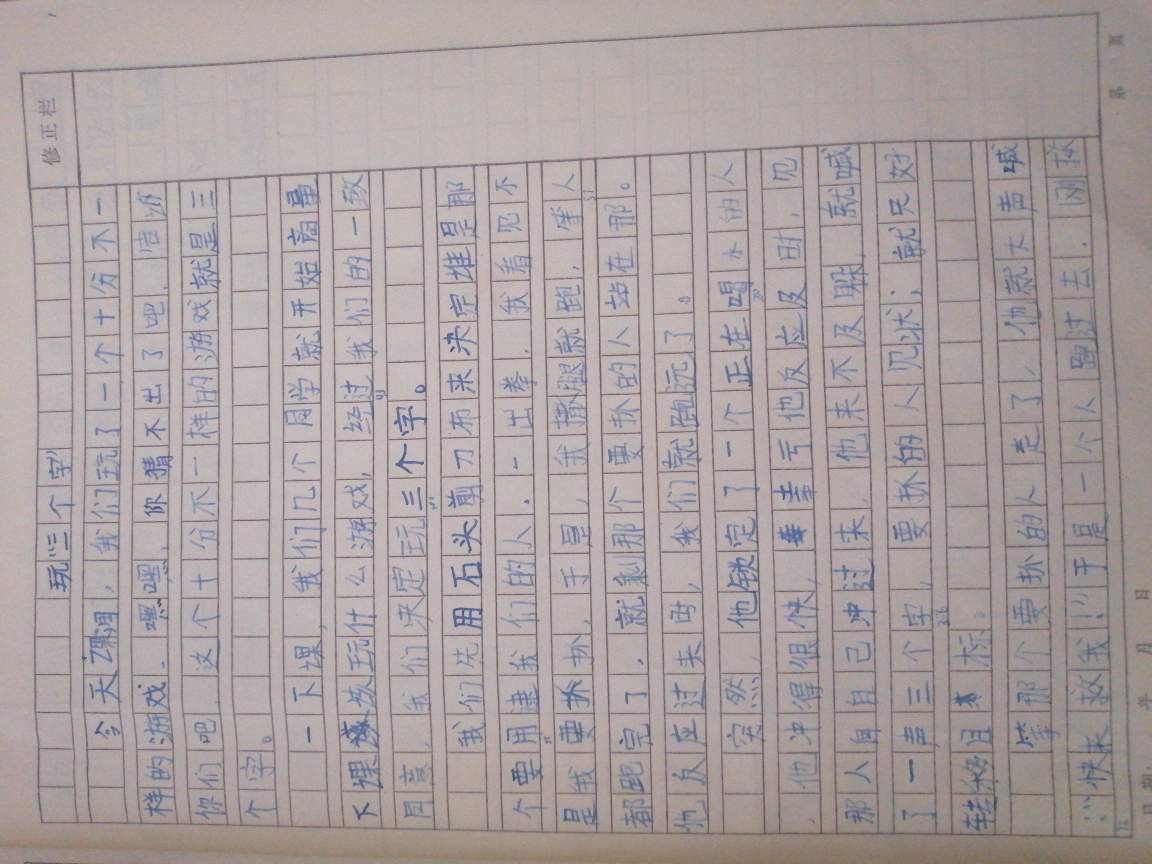 修正栏
玩“三个字”
今天课间，我们玩了一个十分不一
样的游戏。嘿嘿，你猜不出了吧，告诉
你们吧，这个十分不一样的游戏就是三
个字。
一下课，我们几个同学就开始商量
下课该玩什么游戏，经过我们的一致
同意，我们决定玩三个字。
我们先用石头剪刀布来决定谁是那
个要用逮我们的人。一出拳，我看见不
是我要抓，于是，我撒腿就跑，等人
都跑完了，就剩那个要抓的人站在那。
他反应过来时，我们就跑远了。
突然，他锁定了一个正在喝水的人
，他冲得很快，幸亏他反应及时，见
那人向自己冲过来，他来不及躲，就喊
了一声三个字，要抓的人见状，就只好
转移目标。
等那个要抓的人走了，他就大声喊
：“快来救我！”于是一个人跑过去，刚救
第 页
日期： 年 月 日